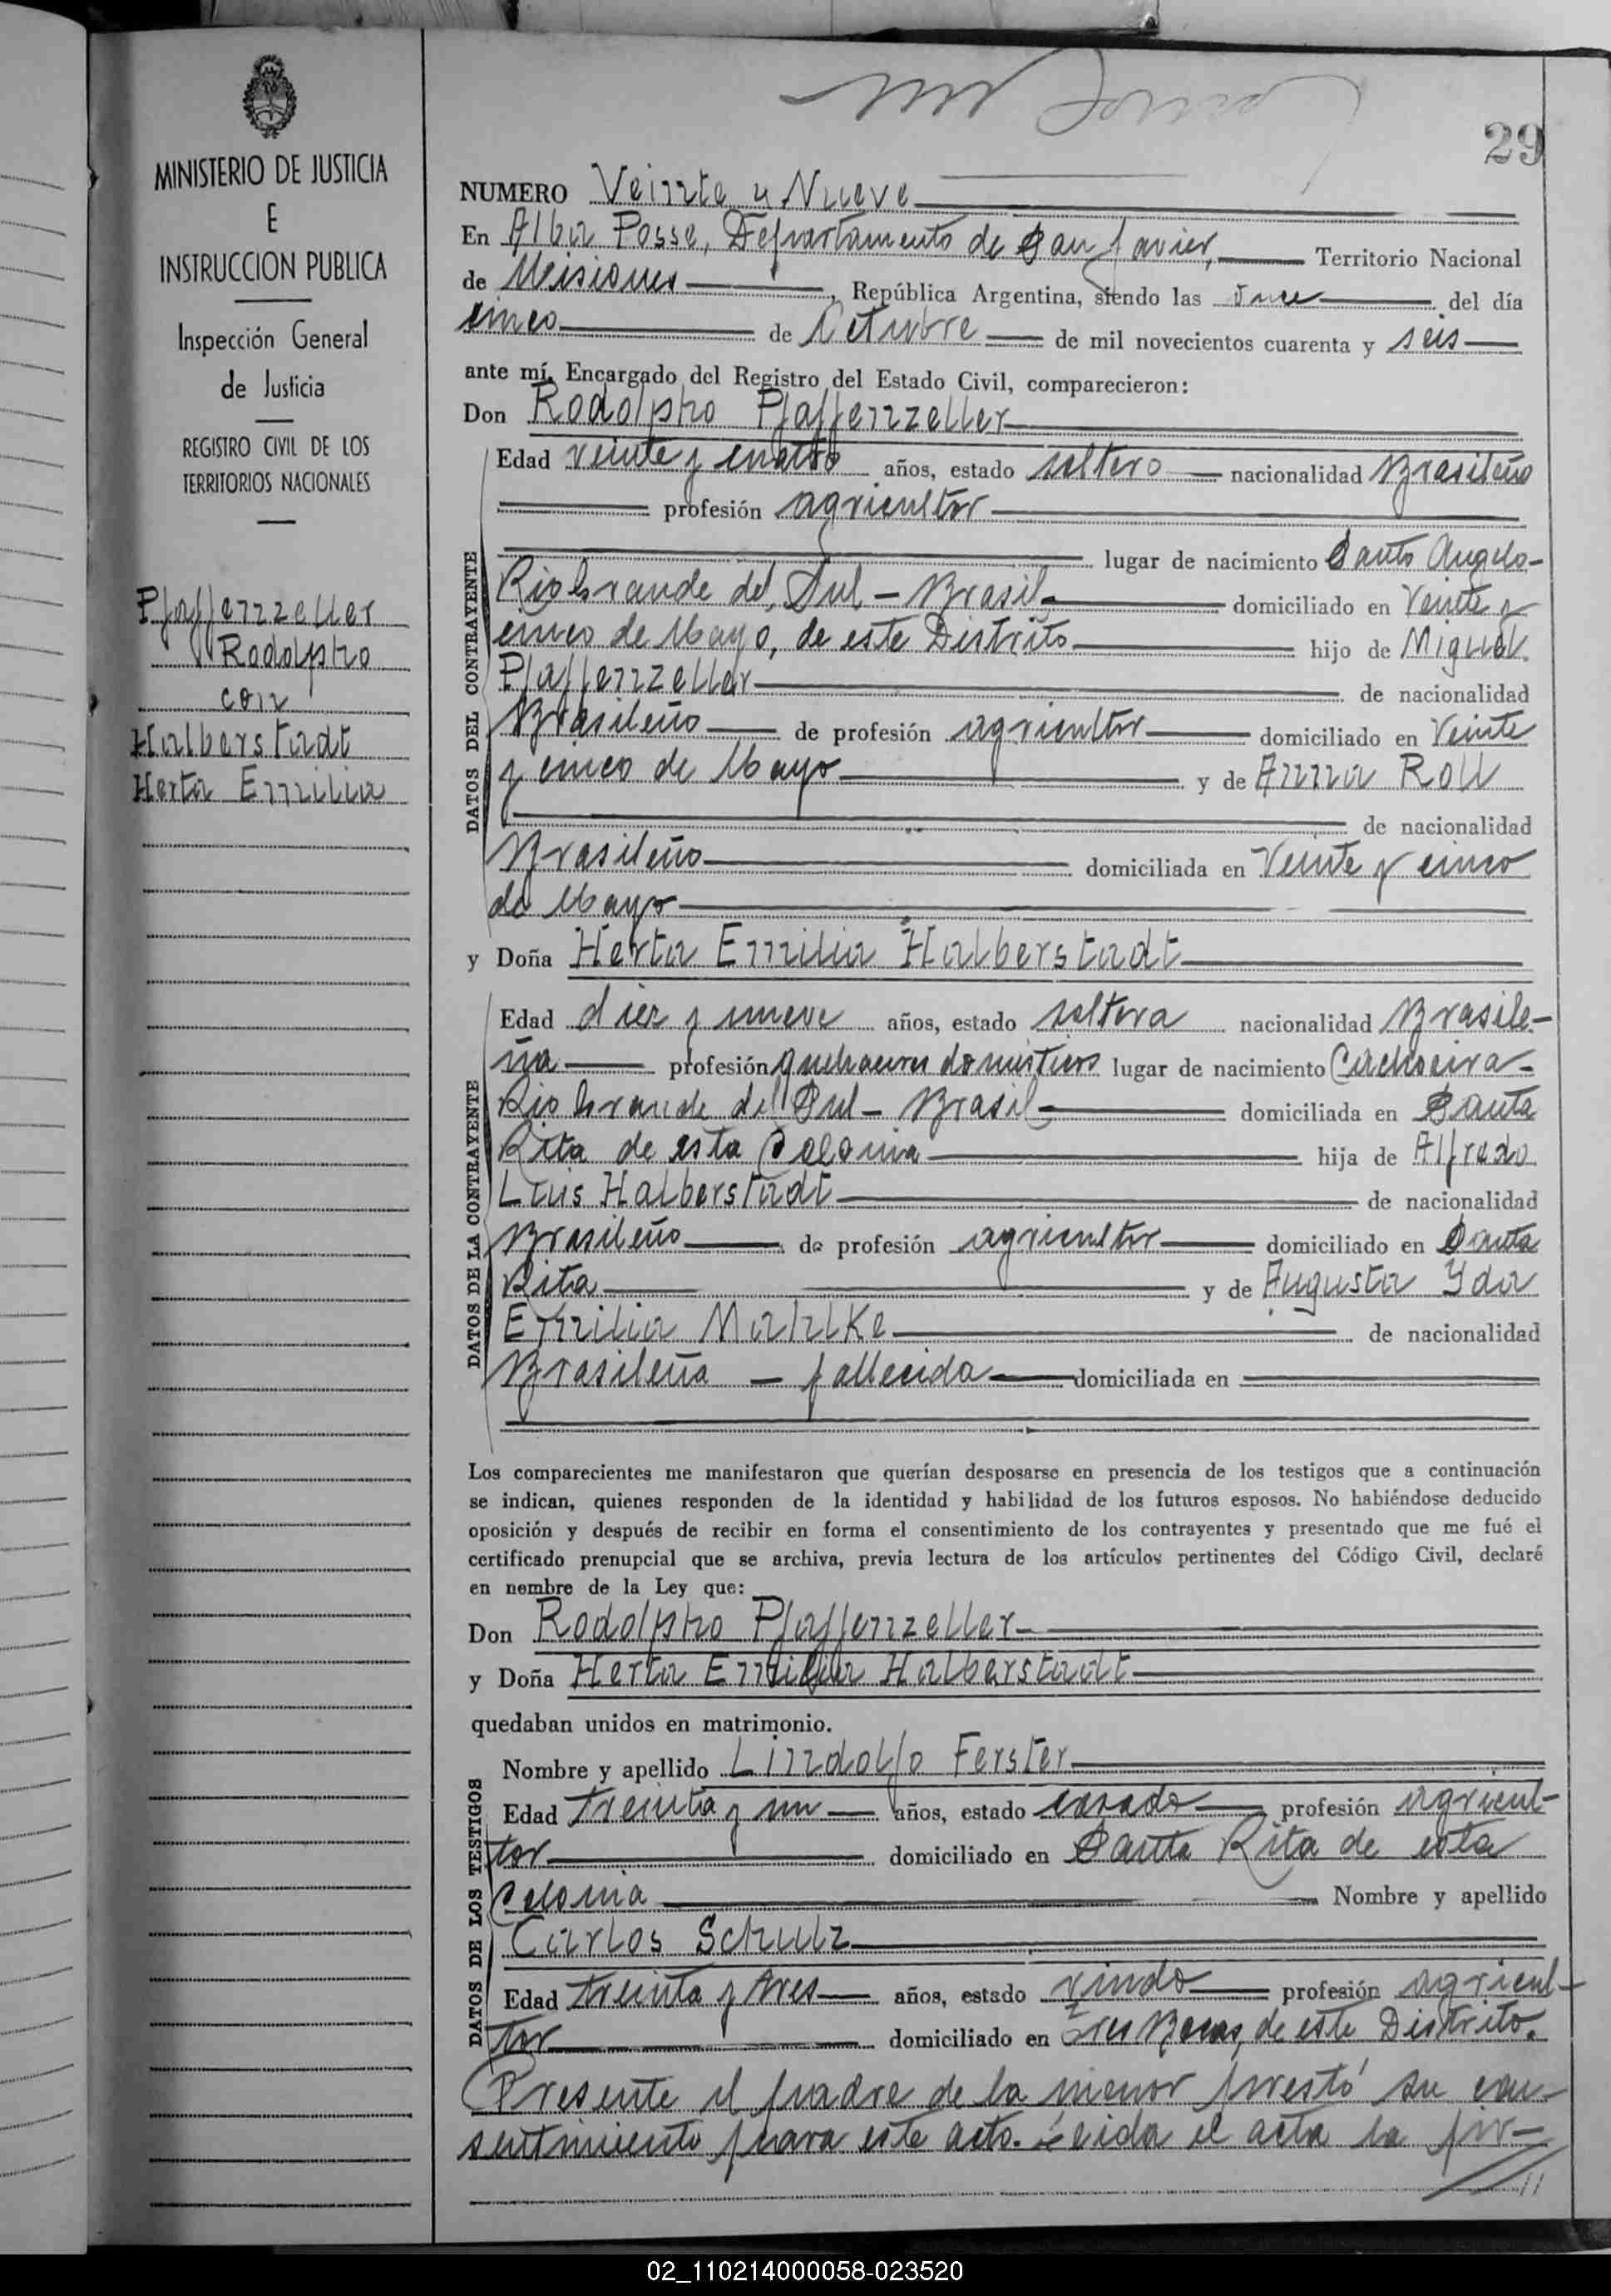 29
MINISTERIO DE JUSTICIA
E
INSTRUCCION PUBLICA
Inspección General
de Justicia
REGISTRO CIVIL DE LOS
TERRITORIOS NACIONALES
Pfaffenzeller
Rodolpho
con
Halberstadt
Herta Emilia
NUMERO Veinte y Nueve
En Alba Posse, Departamento de San Javier, Territorio Nacional
de Misiones, República Argentina, siendo las once del día
cinco de Octubre de mil novecientos cuarenta y seis
ante mí, Encargado del Registro del Estado Civil, comparecieron:
Don Rodolpho Pfaffenzeller
DATOS DEL CONTRAYENTE
Edad veinte y cuatro años, estado soltero nacionalidad Brasileño
profesión agricultor
lugar de nacimiento Santo Angelo-
Rio Grande del Sul - Brasil domiciliado en Veinte y
cinco de Mayo, de este Distrito hijo de Miguel
Pfaffenzeller de nacionalidad
Brasileño de profesión agricultor domiciliado en Veinte
y cinco de Mayo y de Anna Roll
de nacionalidad
Brasileño domiciliada en Veinte y cinco
de Mayo
y Doña Herta Emilia Halberstadt
DATOS DE LA CONTRAYENTE
Edad diez y nueve años, estado soltera nacionalidad Brasile-
ña profesión quehaceres domésticos lugar de nacimiento Cachoeira-
Rio Grande del Sul - Brasil domiciliada en Santa
Rita de esta Colonia hija de Alfredo
Luis Halberstadt de nacionalidad
Brasileño de profesión agricultor domiciliado en Santa
Rita y de Augusta Yda
Emilia Mahlke de nacionalidad
Brasileña - fallecida domiciliada en
Los comparecientes me manifestaron que querían desposarse en presencia de los testigos que a continuación
se indican, quienes responden de la identidad y habilidad de los futuros esposos. No habiéndose deducido
oposición y después de recibir en forma el consentimiento de los contrayentes y presentado que me fué el
certificado prenupcial que se archiva, previa lectura de los artículos pertinentes del Código Civil, declaré
en nombre de la Ley que:
Don Rodolpho Pfaffenzeller
y Doña Herta Emilia Halberstadt
quedaban unidos en matrimonio.
DATOS DE LOS TESTIGOS
Nombre y apellido Lindolfo Ferster
Edad treinta y un años, estado casado profesión agricul-
tor domiciliado en Santa Rita de esta
Colonia Nombre y apellido
Carlos Schulz
Edad treinta y tres años, estado viudo profesión agricul-
tor domiciliado en Tres Bocas, de este Distrito.
Presente el padre de la menor prestó su con-
sentimiento para este acto. Leida el acta la fir-
02_110214000058-023520